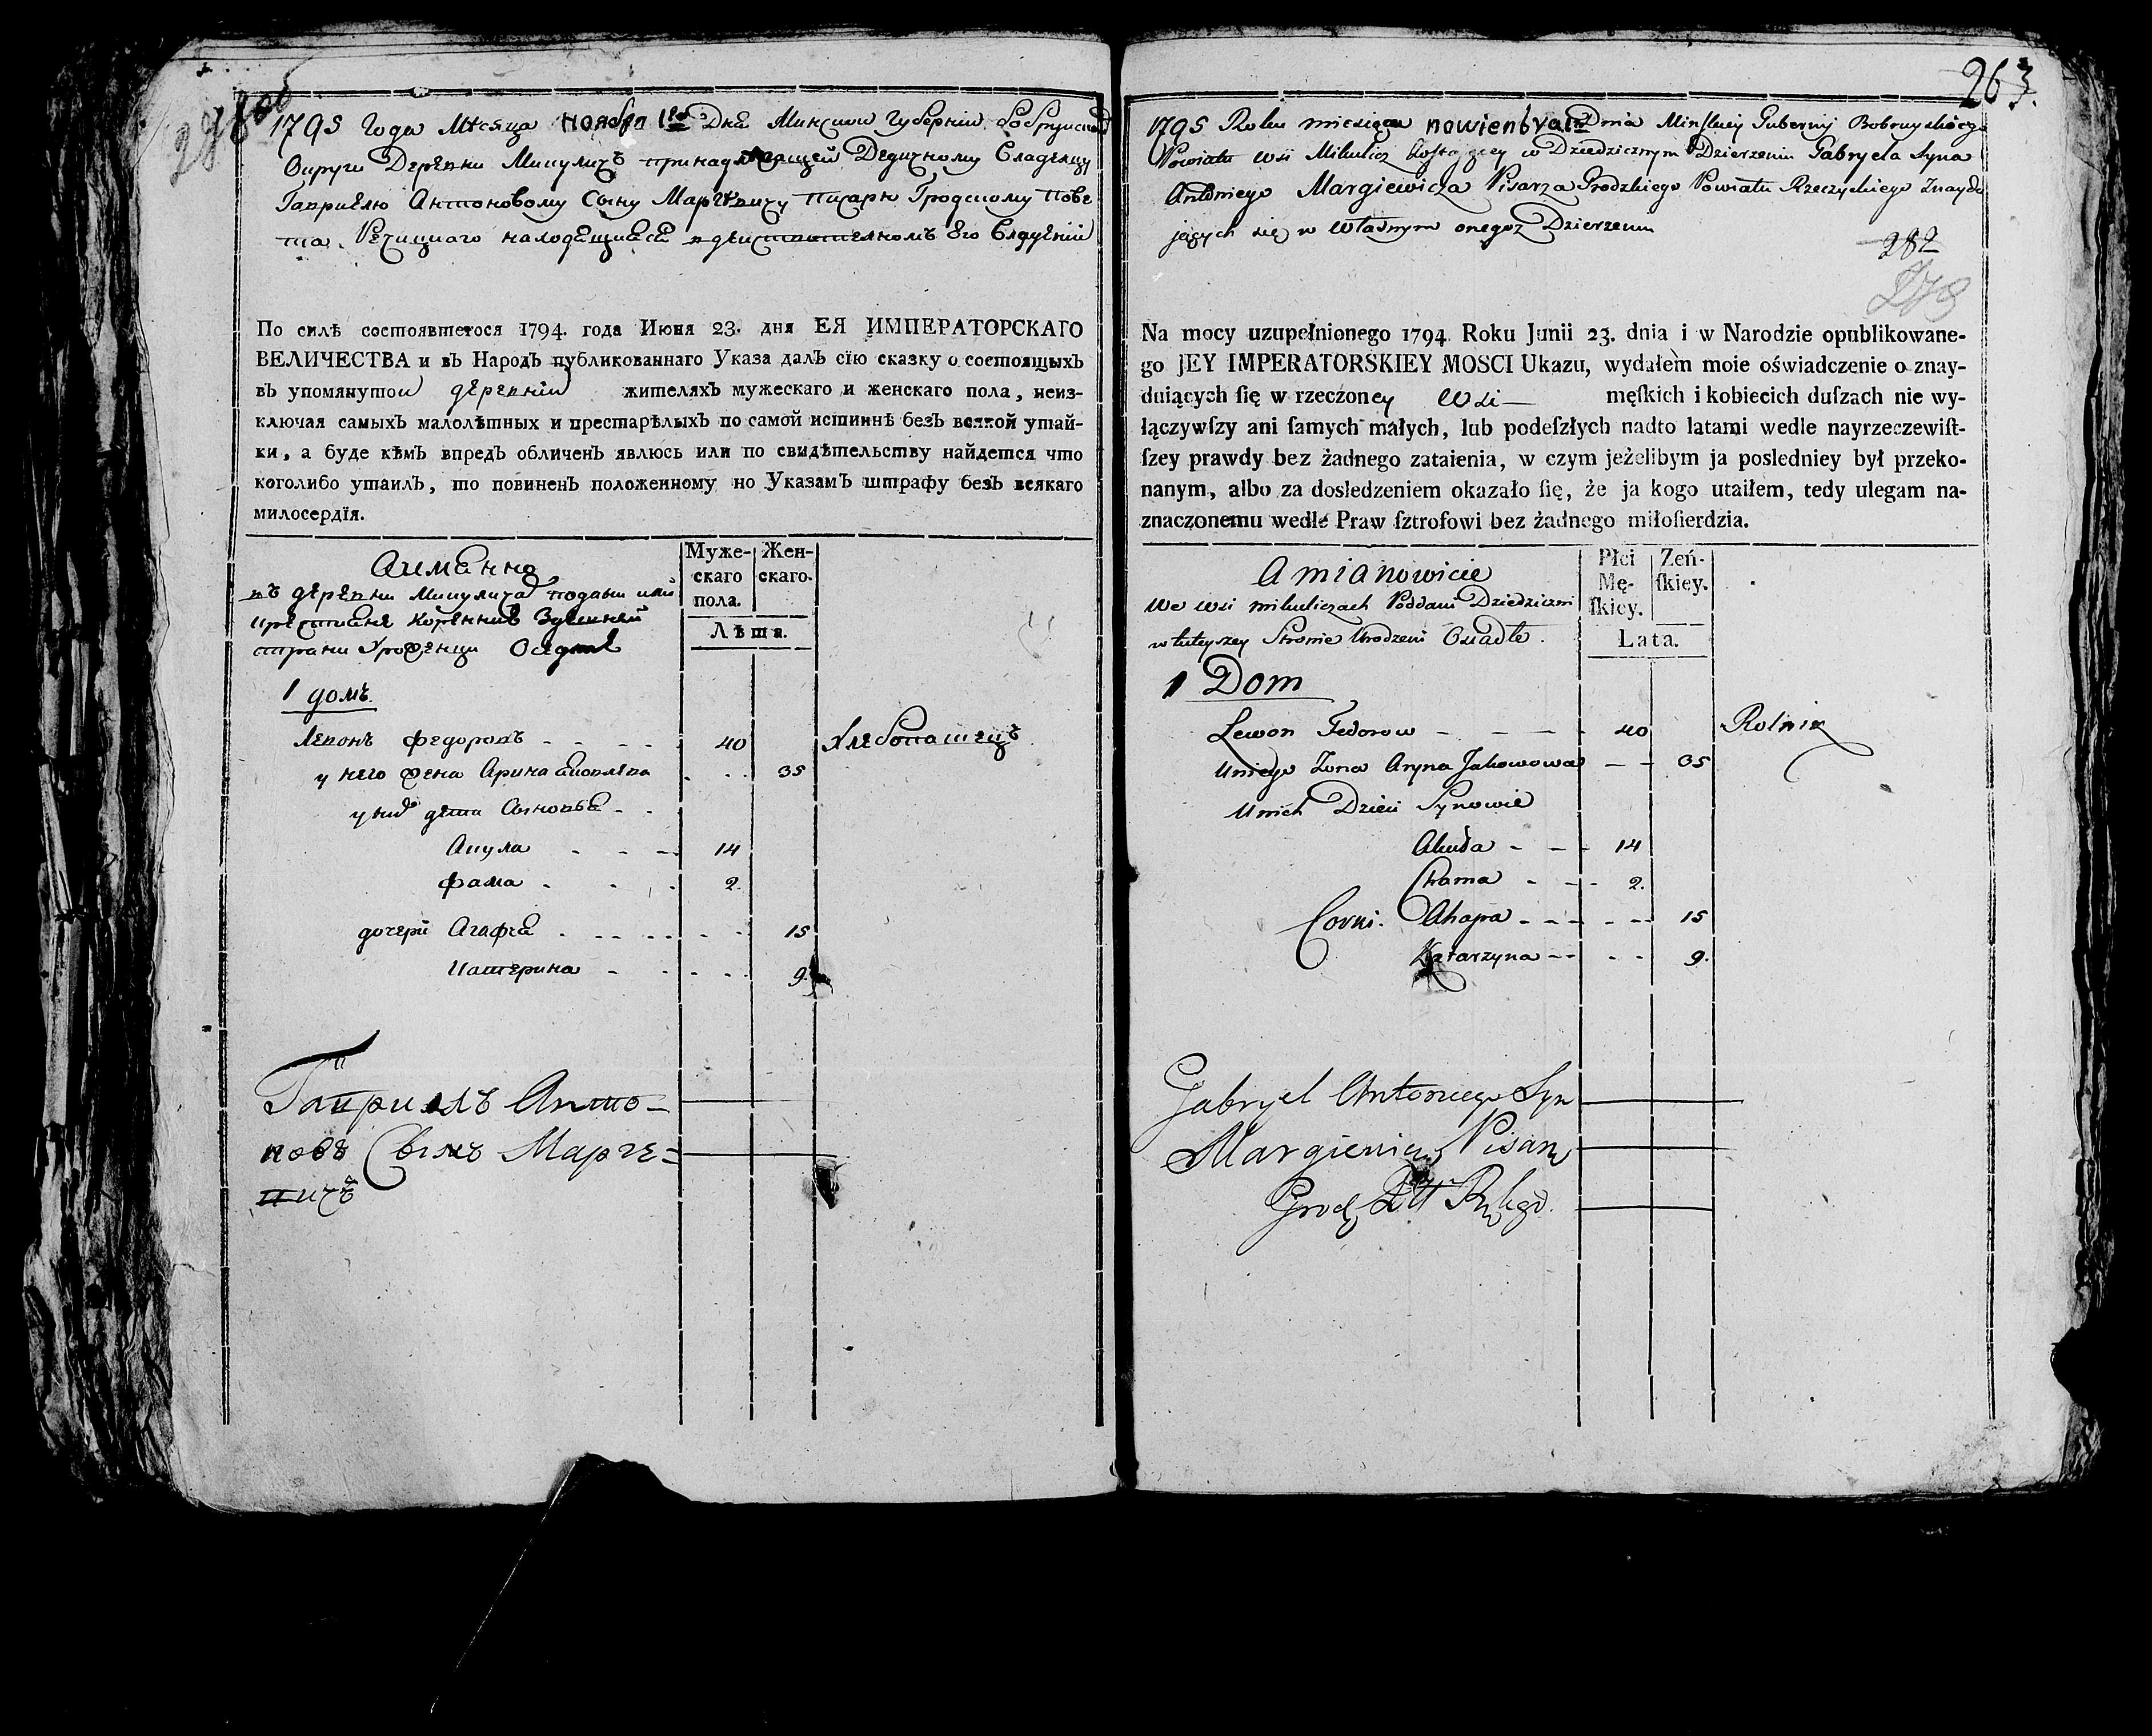 1795 Года Мѣсяца Ноября 1го Дня Минской Губерніи Бобруйской
Округи Деревни Микуличъ принадлежащей Дедичному Владельцу
Гаприелю Антоновому Сыну Маргевичу писарю Гродскому Пове
та Речицкаго находящиися в действителномъ Его Владении
По силѣ состоявшегося 1794. года Июня 23. дня ЕЯ ИМПЕРАТОРСКАГО
ВЕЛИЧЕСТВА и въ Народъ публикованнаго Указа далъ сїю сказку о состоящыхъ
въ упомянутои деревнии жителяхъ мужескаго и женскаго пола, неиз-
ключая самыхъ малолѣтныхъ и престарѣлыхъ по самой истиннѣ безъ всякой утай-
ки, а буде кѣмъ впредъ обличенъ явлюсь или по свидѣтельству найдется что
коголибо утаилъ, то повиненъ положенному по Указамъ штрафу безъ всякаго
милосердїя.
Аимянно
въ деревни Микуличах подани
крестияне коренние здешней
страни Урожденци Оседлие
Муже-
скаго
пола.
Жен-
скаго.
Лѣта.
1 домъ
Левонъ Федоровъ - - - - 40 Хлебопашецъ
у него жена Арина Яковлева - - - 35
у них дети Сыновья - -
Акула - - - - 14
Фама - - - 2.
дочери Агафия - - - - - - 15
Катерина - - - - - 9.
Гавриилъ Анто-
новъ Сынъ Марге=
вичъ
263.
1795 Roku miesiąca nowienbra 1 Dnia Minſkiey Gubernij Bobruyskiego
Powiatu wsi Mikulicz Zostaiącey w Dziedzicznym Dzierzeniu Gabryela Syna
Antoniego Margiewicza Pisarza Grodzkiego Powiatu Rzeczyckiego Znaydu
jących się w własnym onegoż Dzierzeniu
282
278
Na mocy uzupełnionego 1794 Roku Junii 23. dnia i w Narodzie opublikowane-
go JEY IMPERATORSKIEY MOSCI Ukazu, wydałem moie oświadczenie o znay-
duiących ſię w rzeczoney wsi męſkich i kobiecich duſzach nie wy-
łączywſzy ani ſamych małych, lub podeſzłych nadto latami wedle nayrzeczewiſt-
ſzey prawdy bez żadnego zataienia, w czym jeżelibym ja posledniey był przeko-
nanym, albo za dosledzeniem okazało ſię, że ja kogo utaiłem, tedy ulegam na-
znaczonemu wedle Praw ſztrofowi bez żadnego miłoſierdzia.
Amianowicie
We wsi mikuliczach Poddani Dziedziczni
w tuteyszey Stronie Urodzeni Osiadłe.
Płci
Mę-
ſkiey.
Zeń-
ſkiey.
Lata.
1 Dom
Lewon Fedorow - - - - 40 Rolnik
Uniego Zona Aryna Jakowowa - - 35
Unich Dzieci Synowie
Akuła - - - 14
Chama - - - 2.
Corki. Ahapa - - - - - - 15
Katarzyna - - - - 9.
Gabryel Antoniego Syn
Margiewicz Pisarz
Grodz